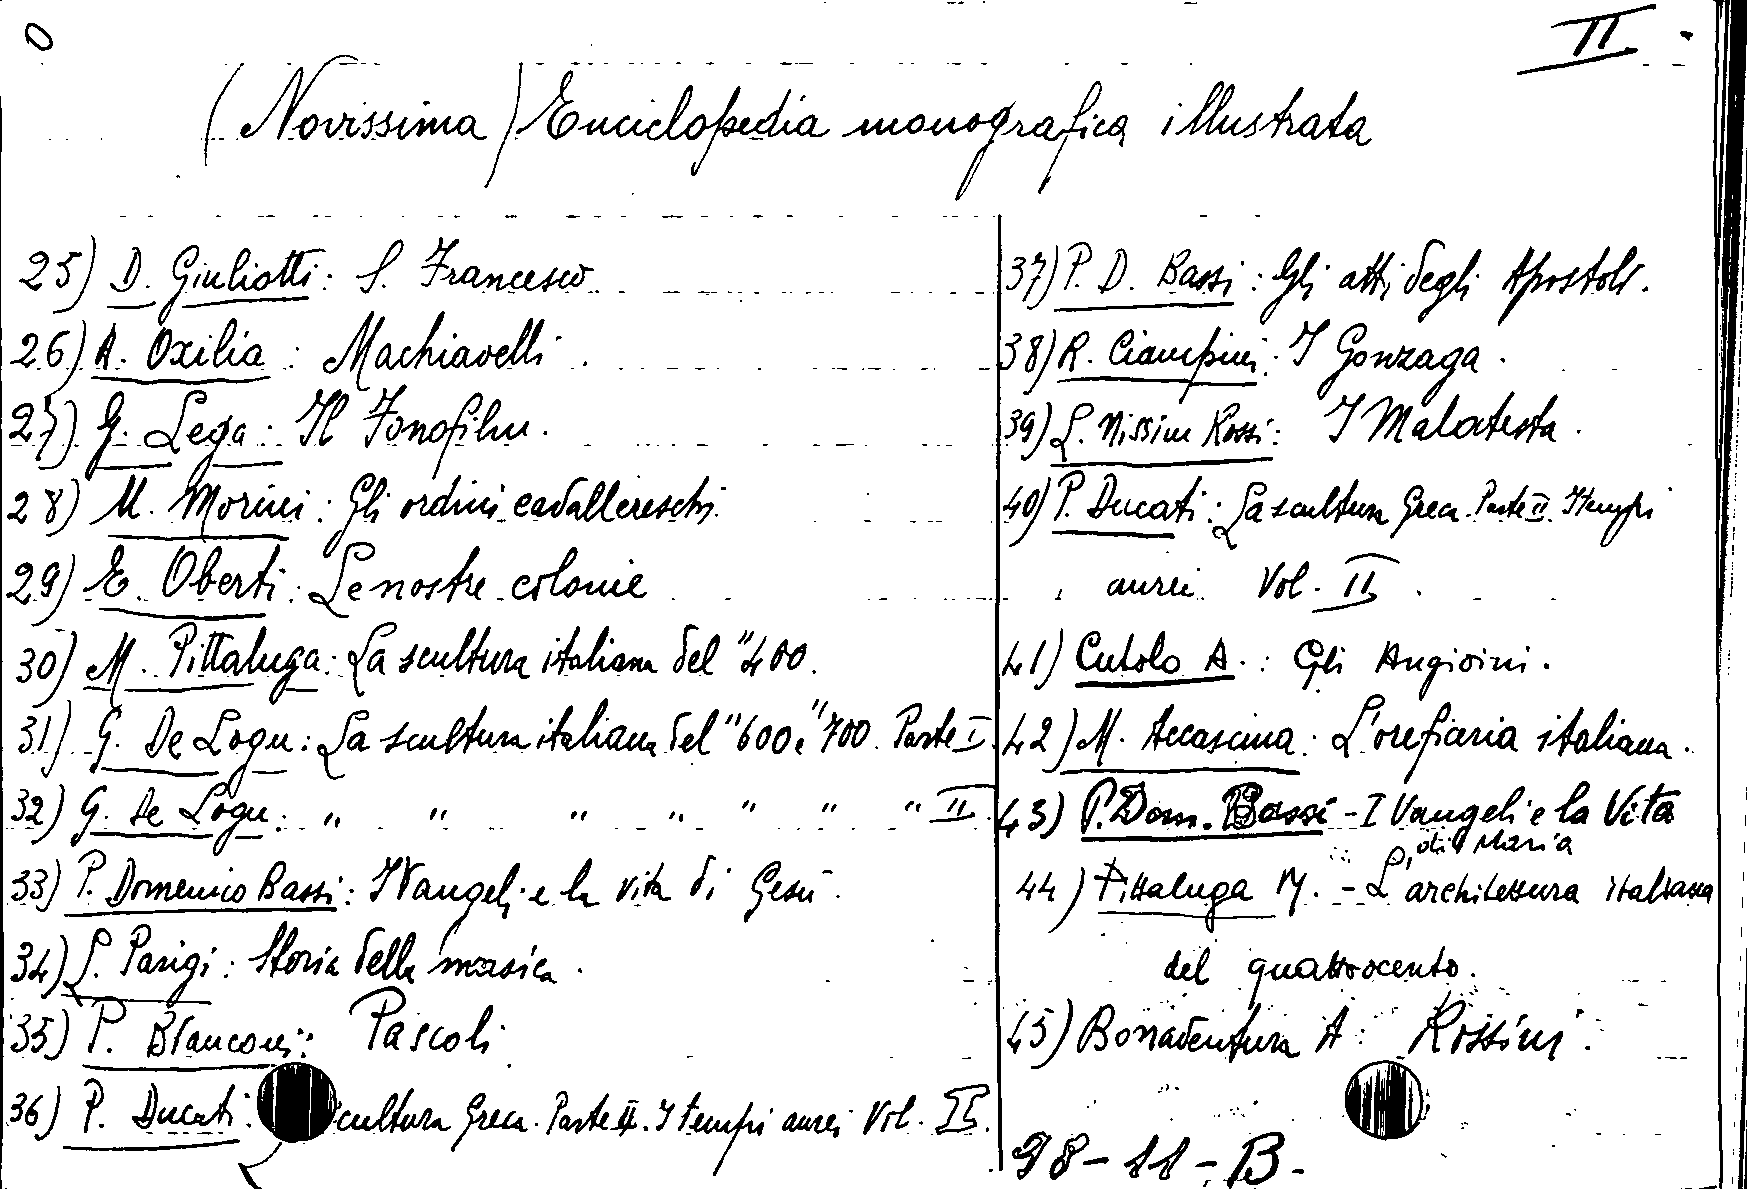 II.
(Novissima) Enciclopedia monografica illustrata
25) D. Giuliotti: S. Francesco
26) A. Oxilia: Machiavelli.
27) G. Lega: Il Fonofilm.
28) M. Morini: Gli ordini cavallereschi.
29) E. Oberti: Le nostre colonie
30) M. Pittaluga: La scultura italiana del "400.
31) G. De Logu: La scultura italiana del "600 e "700. Parte I
32) G. de Logu: " " " " " " " II
33) P. Domenico Bassi: I Vangeli e la vita di Gesù.
34) L. Parigi: Storia della musica.
35) P. Blanconi: Pascoli
36) P. Ducati: cultura Greca. Parte II. I tempi aurei Vol. II.
37) P. D. Bassi: Gli atti degli Apostoli.
38) R. Ciampini: I Gonzaga.
39) L. Nissim Rossi: I Malatesta.
40) P. Ducati: La scultura Greca. Parte II. I tempi
aurei Vol. II.
41) Cutolo A.: Gli Angioini.
42) M. Accascina: L'oreficeria italiana.
43) P. Dom. Bassi - I Vangeli e la Vita
di Maria
44) Pittaluga M. - L'architettura italiana
del quattrocento.
45) Bonaventura A: Rossini.
98-11-B.